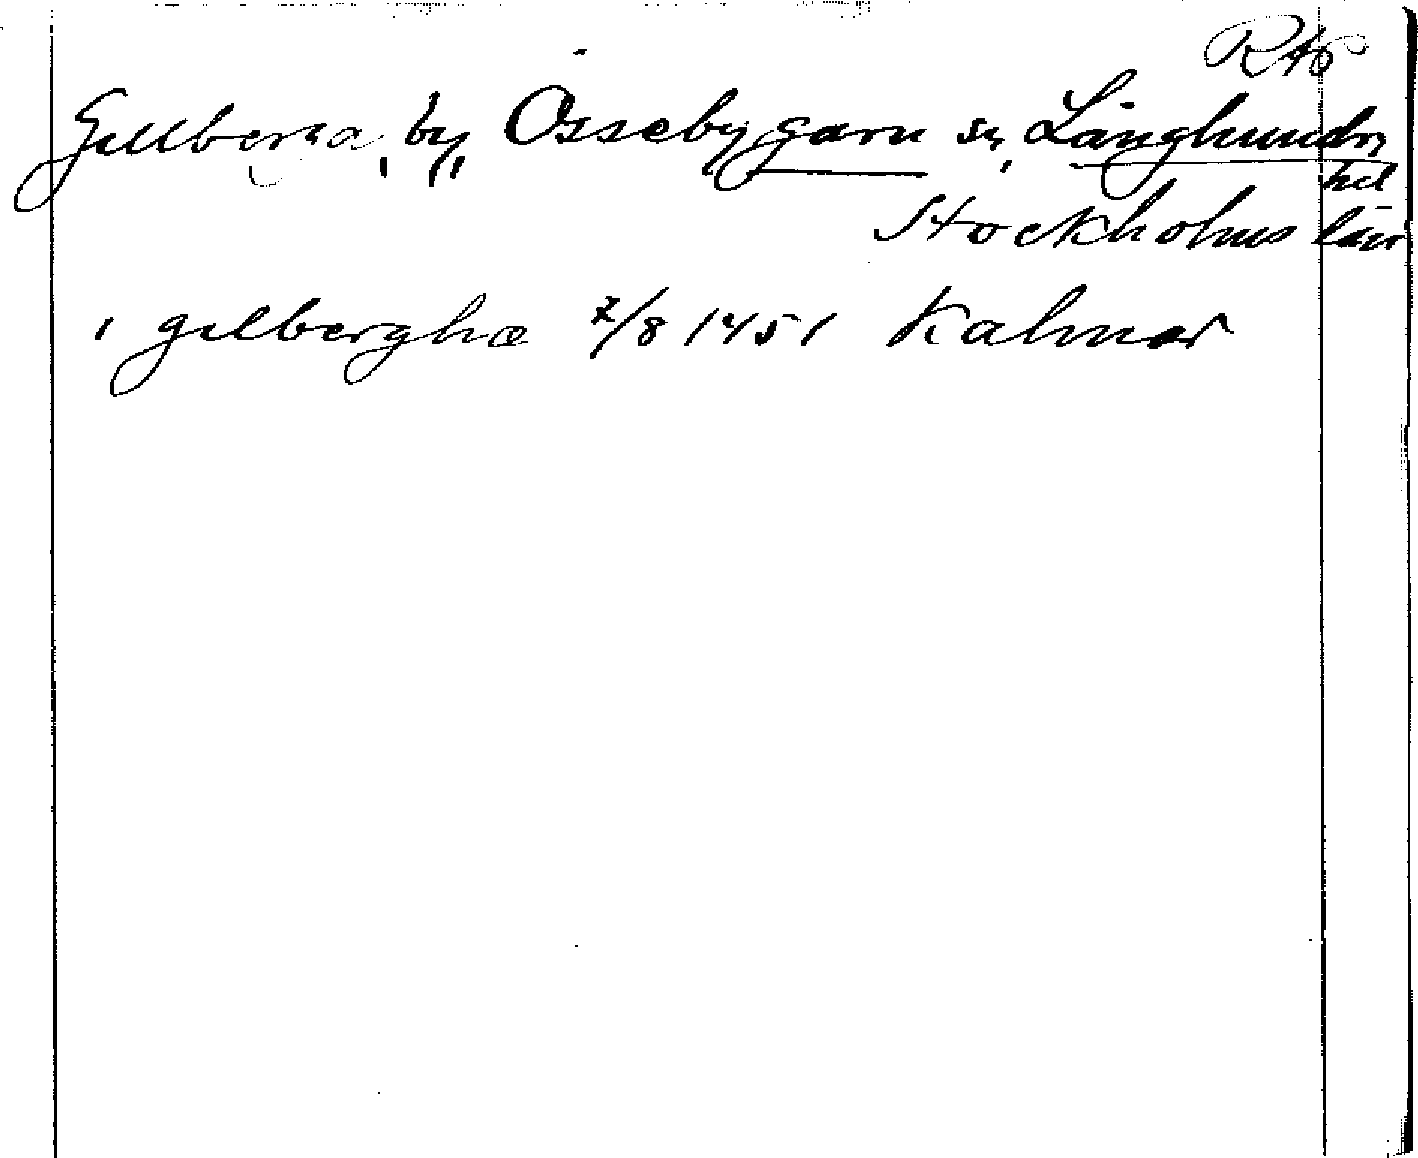 RAp
Gillberga, by, Össebygarn sn, Långhundra
hd
Stockholms län
i gilberghæ 7/8 1451 Kalmar